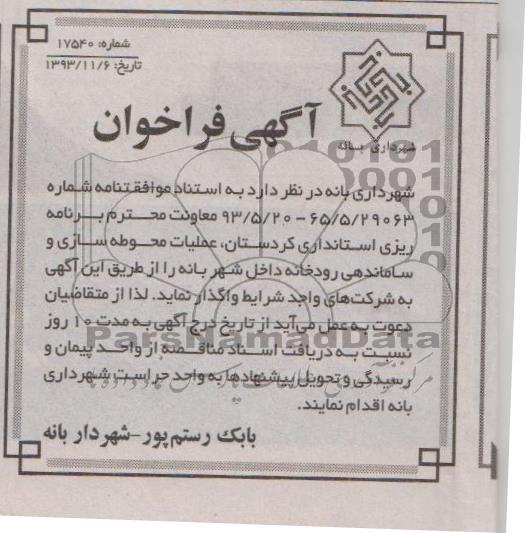 شماره: ۱۷۵۴۰
تاریخ: ۱۳۹۳/۱۱/۶
شهرداری بانه
آگهی فراخوان
شهرداری بانه در نظر دارد به استناد موافقتنامه شماره
۶۵/۵/۲۹۰۶۳ - ۹۳/۵/۲۰ معاونت محترم برنامه
ریزی استانداری کردستان، عملیات محوطه سازی و
ساماندهی رودخانه داخل شهر بانه را از طریق این آگهی
به شرکت‌های واجد شرایط واگذار نماید. لذا از متقاضیان
دعوت به عمل می‌آید از تاریخ درج آگهی به مدت ۱۰ روز
نسبت به دریافت اسناد مناقصه از واحد پیمان و
رسیدگی و تحویل پیشنهادها به واحد حراست شهرداری
بانه اقدام نمایند.
بابک رستم پور-شهردار بانه
ParsNamadData